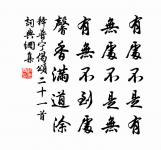 有有不是有
無無不是無
有無不到處
馨香滿道涂
釋普寧偈頌二十一首
詞典網集